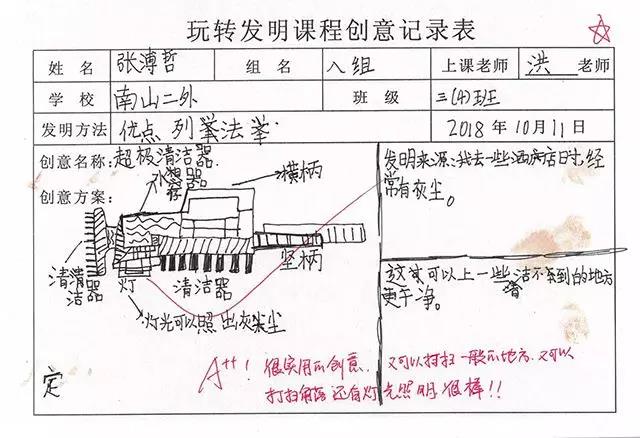 玩转发明课程创意记录表
姓名 张溥哲 组名 八组 上课老师 洪 老师
学校 南山二外 班级 三(4)班
发明方法 优点列举法 2018年10月11日
创意名称:超极清洁器
创意方案:
水
存
横柄
竖柄
清洁器
灯
清洁器
灯光可以照出灰尘
定
发明来源:我去一些酒店时,经
常有灰尘。
这可以上一些清洁不到的地方
更干净。
A++! 很实用的创意. 又可以打扫一般的地方.又可以
打扫角落还有灯光照明.很棒!!